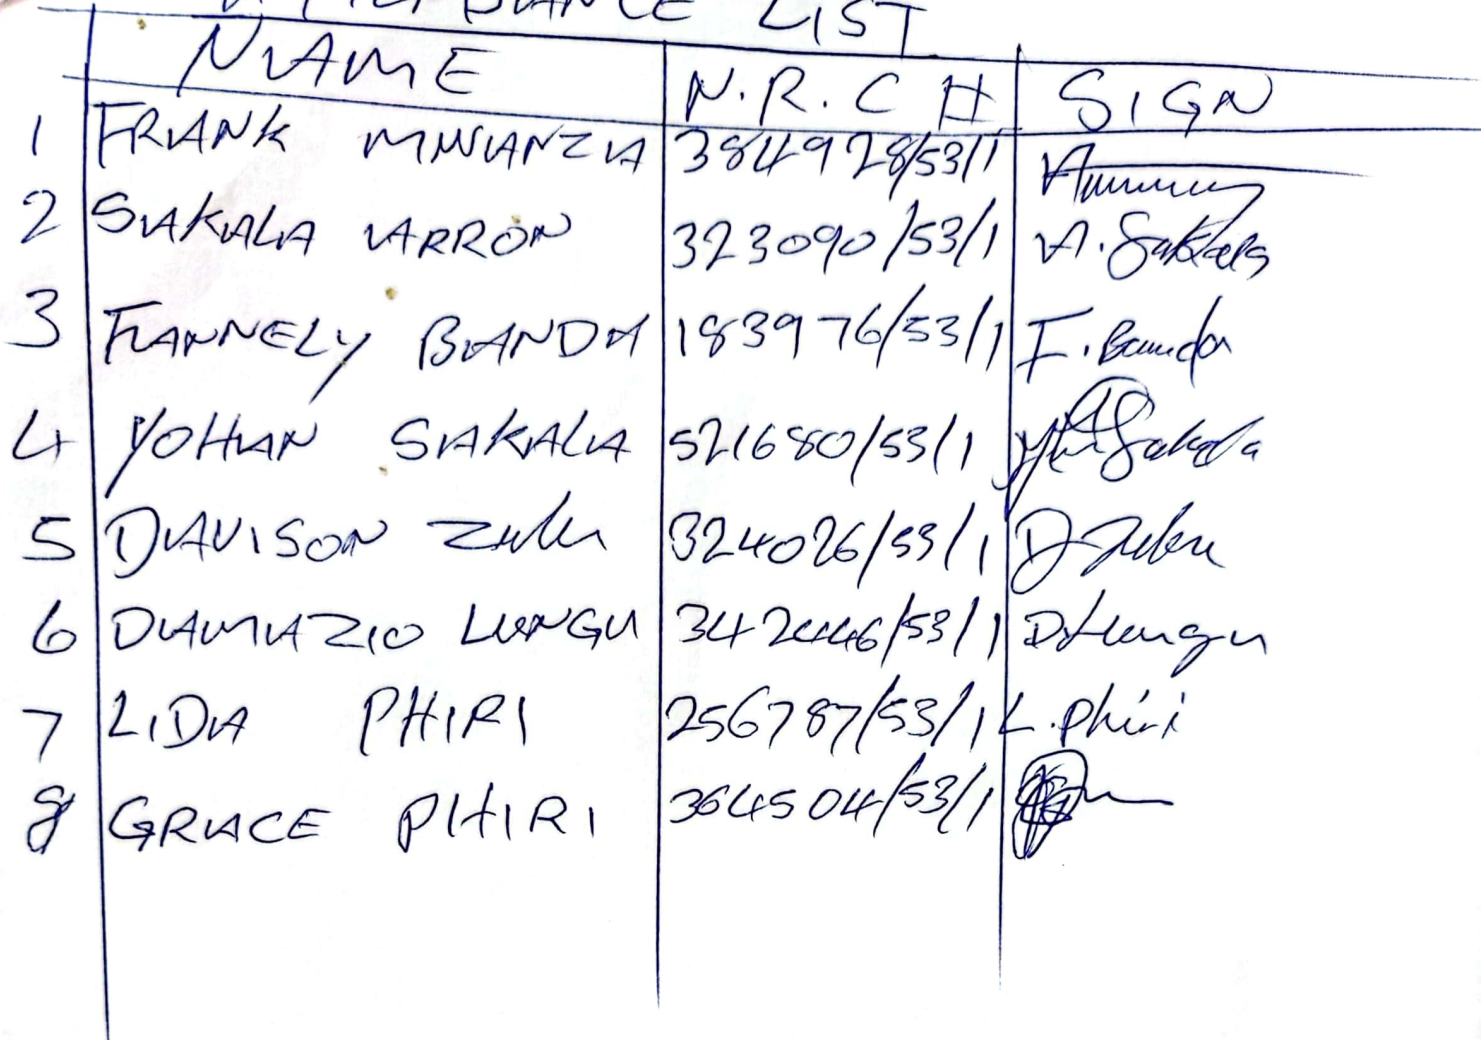 ATTENDANCE LIST
NAME N.R.C # SIGN
1 FRANK MWANZA 384928/53/1
2 SAKALA ARRON 323090/53/1 A. Sakala
3 FANNELY BANDA 183976/53/1 F. Banda
4 YOHAN SAKALA 521680/53/1 Sakala
5 DAVISON Zulu 324026/53/1 D Zulu
6 DAMAZIO LUNGU 342446/53/1 D. Lungu
7 LIDA PHIRI 256787/53/1 L. Phiri
8 GRACE PHIRI 364504/53/1